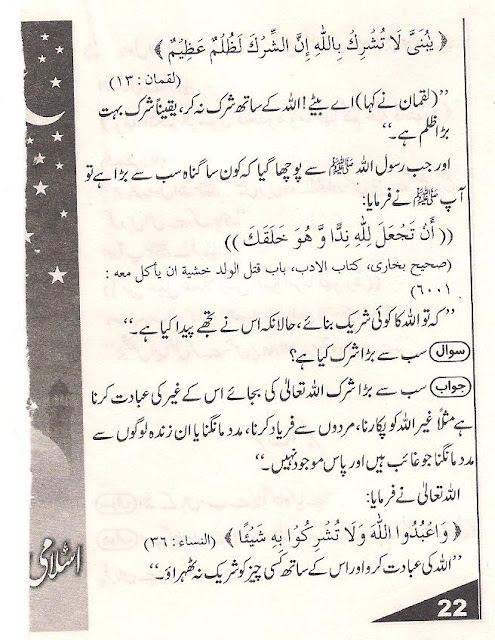 ﴿ يٰبُنَىَّ لَا تُشْرِكْ بِاللّٰهِ اِنَّ الشِّرْكَ لَظُلْمٌ عَظِيْمٌ ﴾
(لقمان : ۱۳)
’’(لقمان نے کہا) اے بیٹے! اللہ کے ساتھ شرک نہ کر، یقیناً شرک بہت
بڑا ظلم ہے۔‘‘
اور جب رسول اللہ ﷺ سے پوچھا گیا کہ کون سا گناہ سب سے بڑا ہے تو
آپ ﷺ نے فرمایا:
(( أَنْ تَجْعَلَ لِلّٰهِ نِدًّا وَّ هُوَ خَلَقَكَ ))
(صحیح بخاری، کتاب الادب، باب قتل الولد خشية ان يأكل معه :
٦٠٠١)
’’کہ تو اللہ کا کوئی شریک بنائے، حالانکہ اس نے تجھے پیدا کیا ہے۔‘‘
سوال سب سے بڑا شرک کیا ہے؟
جواب سب سے بڑا شرک اللہ تعالیٰ کی بجائے اس کے غیر کی عبادت کرنا
ہے مثلاً غیر اللہ کو پکارنا، مردوں سے فریاد کرنا، مدد مانگنا یا ان زندہ لوگوں سے
مدد مانگنا جو غائب ہیں اور پاس موجود نہیں۔‘‘
اللہ تعالیٰ نے فرمایا:
﴿ وَاعْبُدُوا اللّٰهَ وَلَا تُشْرِكُوْا بِهٖ شَيْئًا ﴾ (النساء : ٣٦)
’’اللہ کی عبادت کرو اور اس کے ساتھ کسی چیز کو شریک نہ ٹھہراؤ۔‘‘
اسلامی
22